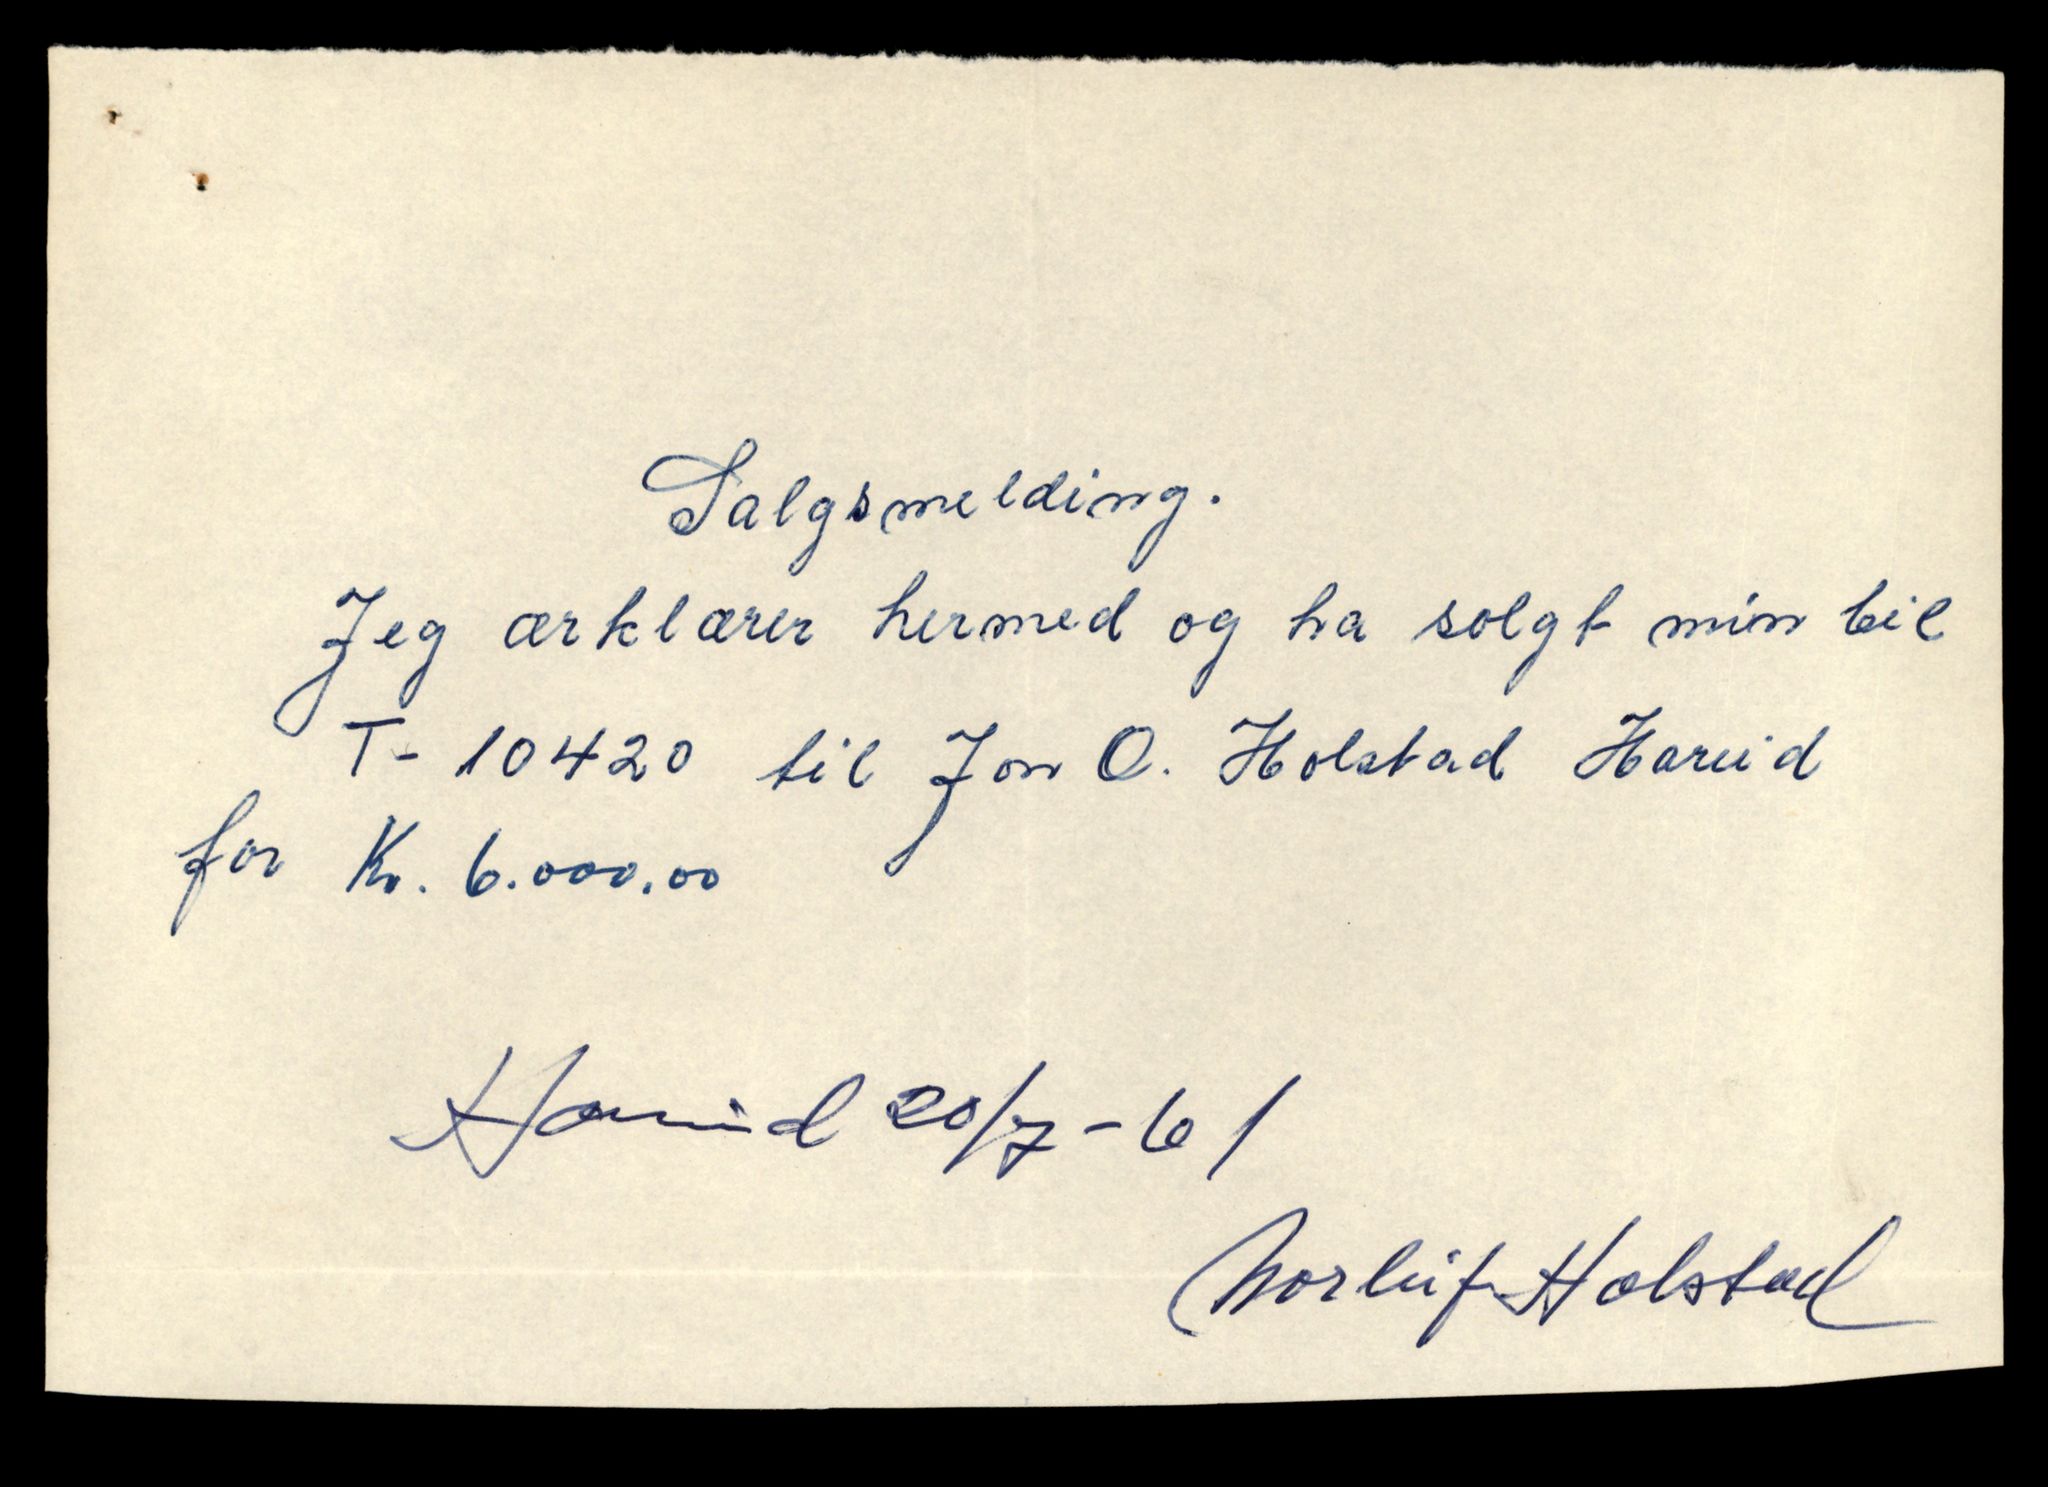 Salgsmelding.
Jeg ærklærer hermed og ha solgt min bil
T- 10420 til Jon O. Holstad Hareid
for Kr. 6.000.00
Hareid 20/7-61
Norleif Holstad